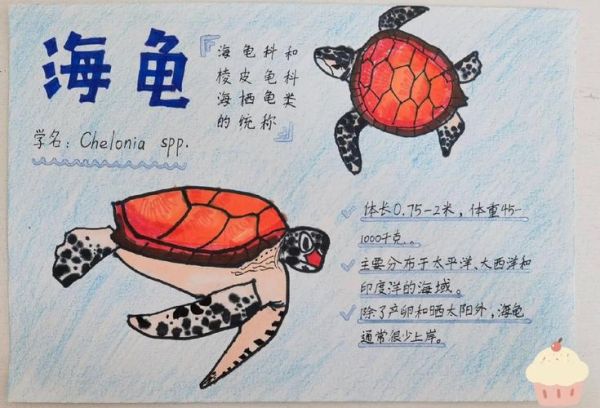 海龟
『海龟科和
棱皮龟科
海栖龟类
的统称』
学名：Chelonia spp.
体长0.75-2米，体重45-
1000千克。。
主要分布于太平洋、大西洋和
印度洋的海域。
除了产卵和晒太阳外，海龟
通常很少上岸。